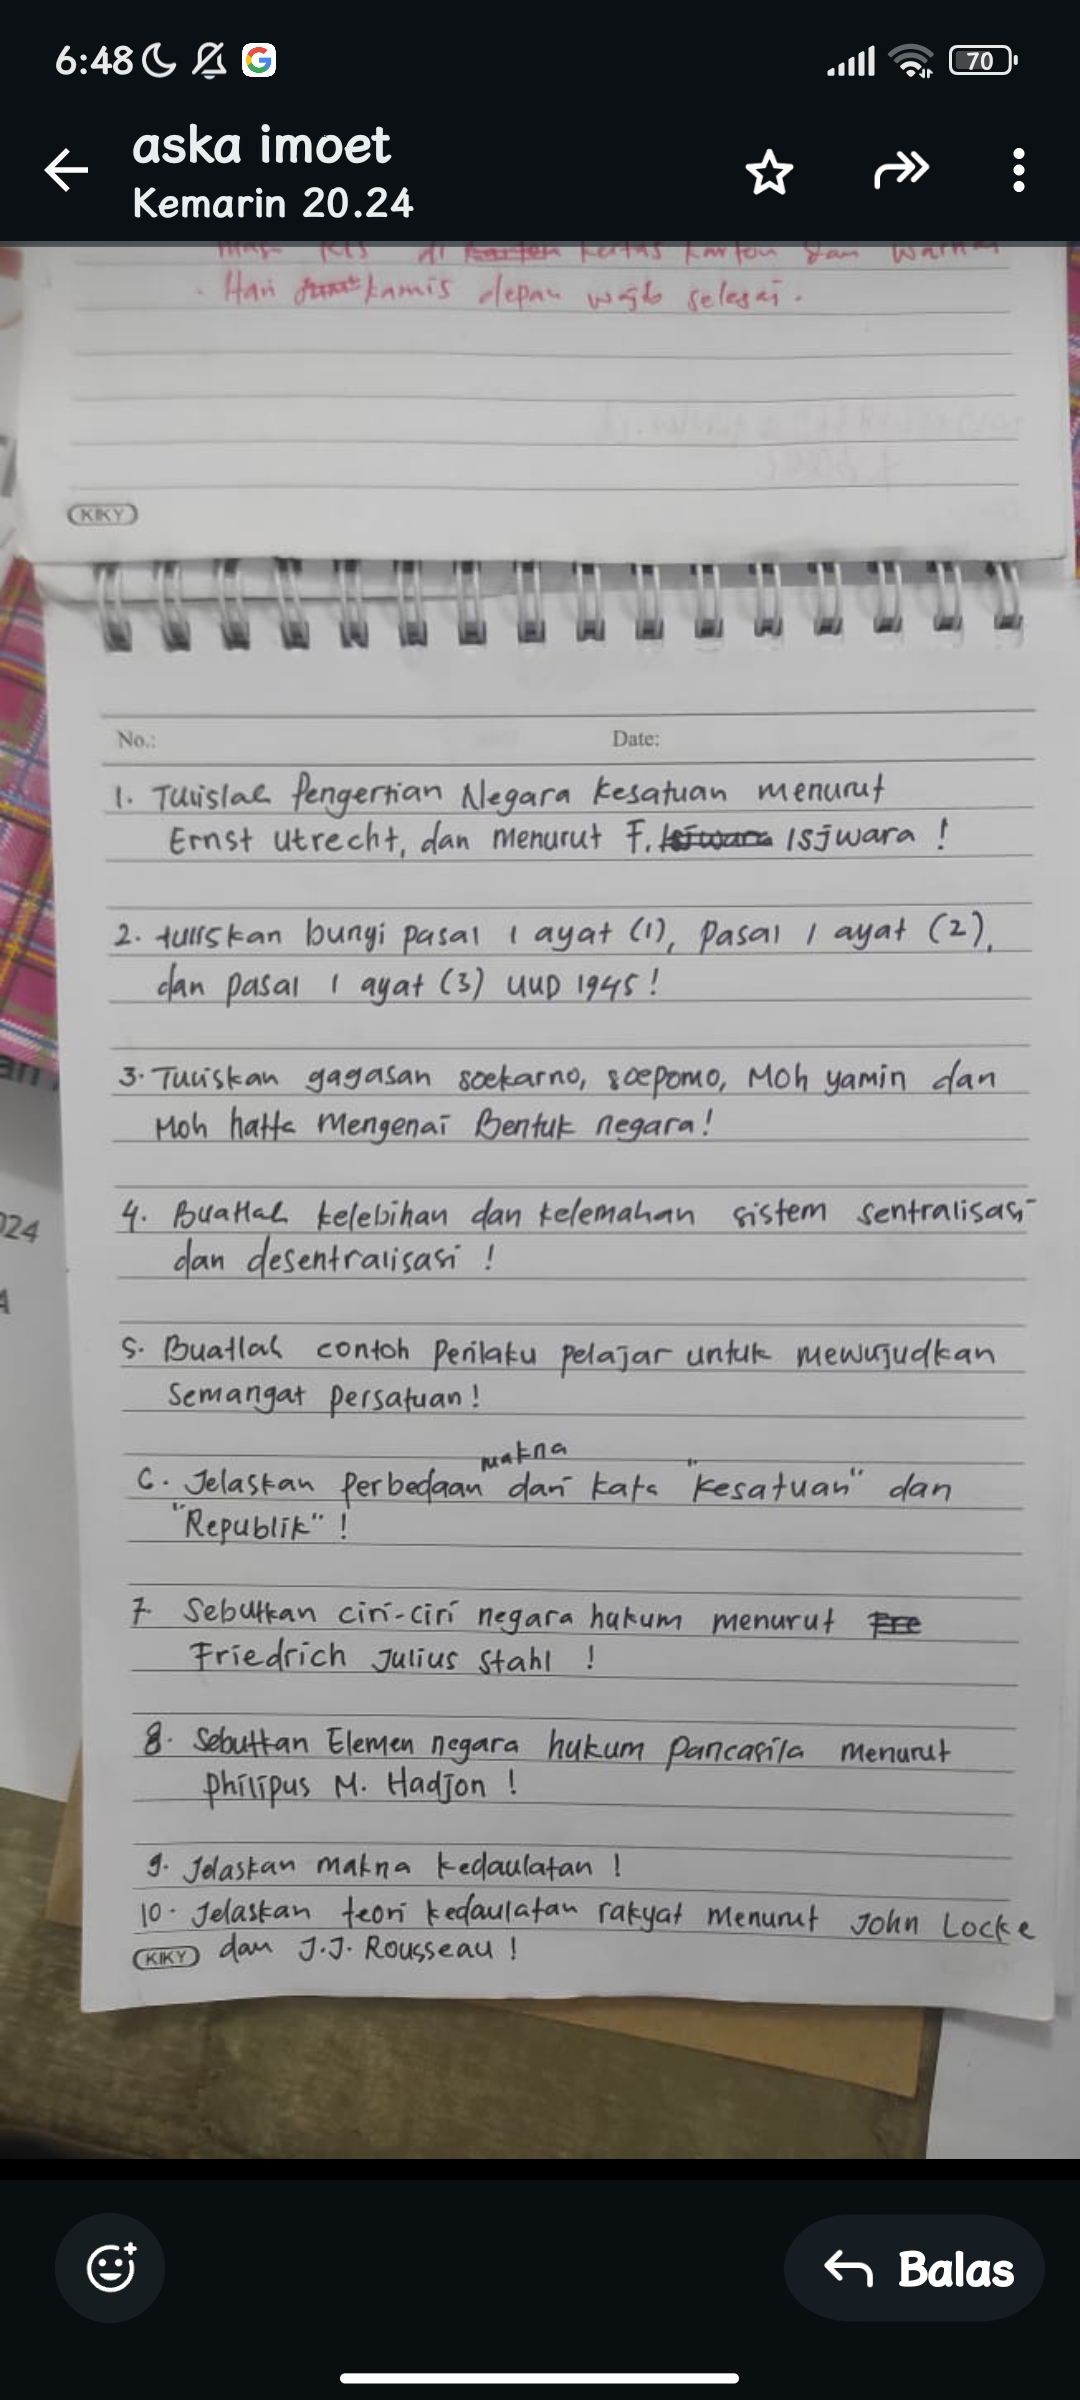 6:48
70
aska imoet
Kemarin 20.24
di karton kertas karton dan warna
. Hari kamis depan wajib selesai.
KIKY
No.: Date:
1. Tulislah Pengertian Negara kesatuan menurut
Ernst Utrecht, dan menurut F. Isjwara Isjwara !
2. tuliskan bunyi pasal 1 ayat (1), Pasal 1 ayat (2),
dan pasal 1 ayat (3) UUD 1945!
3. Tuliskan gagasan soekarno, soepomo, Moh yamin dan
Moh hatta Mengenai Bentuk negara!
024
4. Buatlah kelebihan dan kelemahan sistem sentralisasi
dan desentralisasi !
5. Buatlah contoh Perilaku pelajar untuk mewujudkan
Semangat persatuan!
makna
6. Jelaskan perbedaan dari kata "kesatuan" dan
"Republik" !
7. Sebutkan ciri-ciri negara hukum menurut Fre
Friedrich Julius Stahl !
8. Sebutkan Elemen negara hukum pancasila menurut
philipus M. Hadjon !
9. Jelaskan makna kedaulatan !
10. Jelaskan teori kedaulatan rakyat menurut John Locke
KIKY dan J.J. Rousseau !
Balas